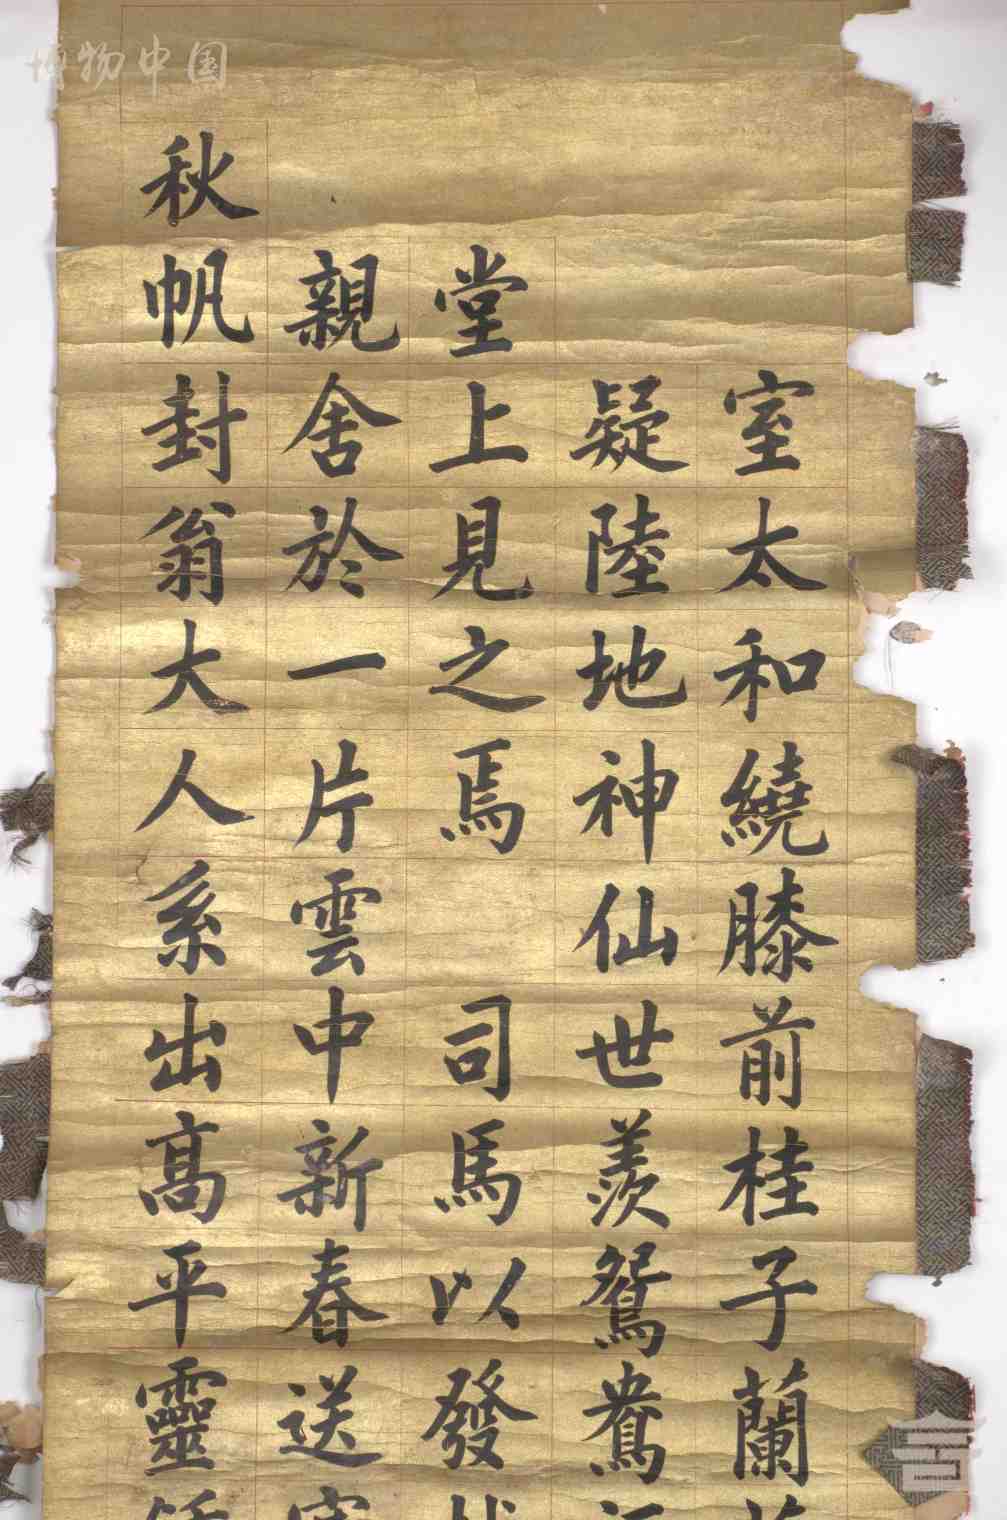 博物中国
室太和繞膝前桂子蘭
疑陸地神仙世羨鴛鴦
堂上見之焉 司馬以發
親舍於一片雲中新春送
秋帆封翁大人系出髙平靈